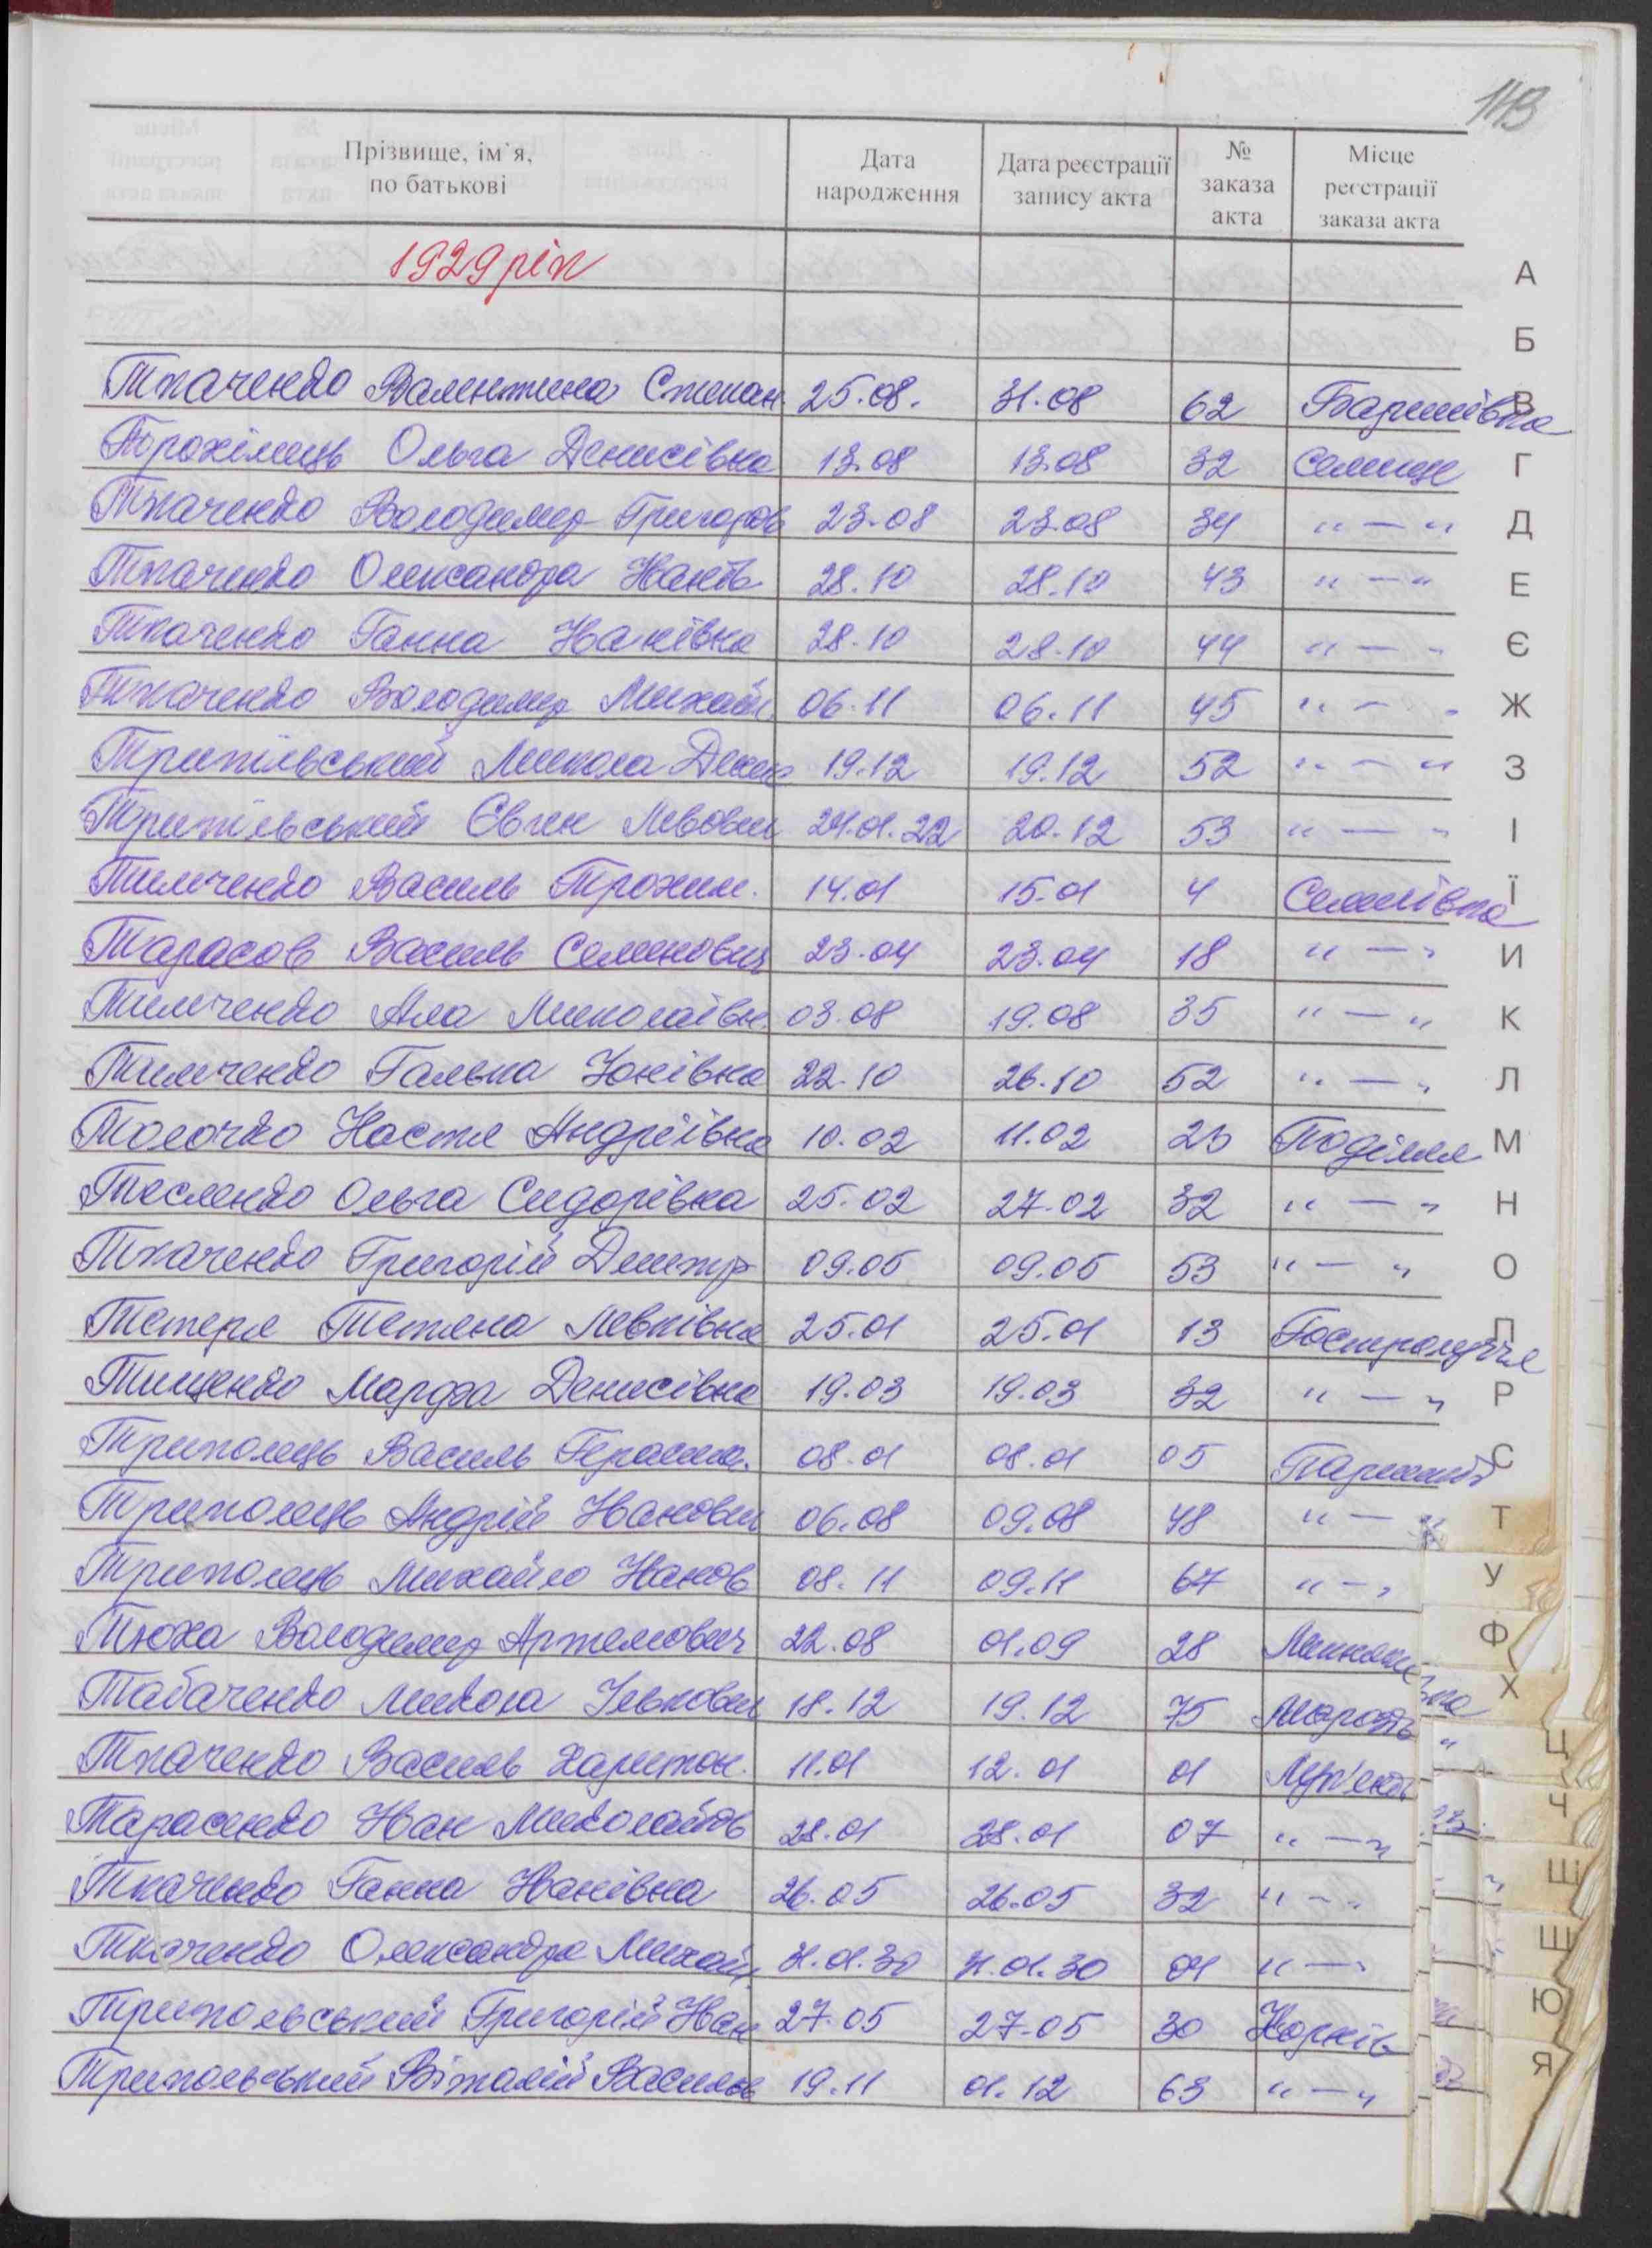 113
Прізвище, ім'я, по батькові | Дата народження | Дата реєстрації запису акта | № заказа акта | Місце реєстрації заказа акта
1929 рік
Ткаченко Валентина Степан 25.08. 31.08 62 Баришівка
Трохімець Ольга Денисівна 13.08 13.08 32 Селище
Ткаченко Володимир Григоров 23.08 23.08 34 " — "
Ткаченко Олександра Іванів. 28.10 28.10 43 " — "
Ткаченко Ганна Іванівна 28.10 28.10 44 " — "
Ткаченко Володимир Михайл. 06.11 06.11 45 " — "
Трипільський Микола Денис 19.12 19.12 52 " — "
Трипільський Євген Левович 24.01.22 20.12 53 " — "
Тимченко Василь Трохим. 14.01 15.01 4 Семенівка
Тарасов Василь Семенович 23.04 23.04 18 " — "
Тимченко Ала Миколаївн. 03.08 19.08 35 " — "
Тимченко Галька Юхівна 22.10 26.10 52 " — "
Толочко Настя Андріївна 10.02 11.02 23 Поділля
Тесленко Ольга Сидорівна 25.02 27.02 32 " — "
Ткаченко Григорій Дмитр 09.05 09.05 53 " — "
Тетеря Тетяна Левківна 25.01 25.01 13 Гостролуччя
Тищенко Марфа Денисівна 19.03 19.03 32 " — "
Триполець Василь Герасим. 08.01 08.01 05 Паришків
Триполець Андрій Іванович 06.08 09.08 48 " — "
Триполець Михайло Іванов 08.11 09.11 67 " — "
Тюха Володимир Артемович 22.08 01.09 28
Табаченко Микола Іллкович 18.12 19.12 75
Ткаченко Василь Харитон. 11.01 12.01 01 Лук'янів
Тарасенко Іван Миколайов 28.01 28.01 07 " — "
Ткаченко Ганна Іванівна 26.05 26.05 32 " — "
Ткаченко Олександра Михайл. 31.01.30 31.01.30 04 " — "
Трипольський Григорій Іван 27.05 27.05 30 Коржів
Трипольський Віталій Васильов 19.11 01.12 63 " — "
А
Б
В
Г
Д
Е
Є
Ж
З
І
Ї
И
К
Л
М
Н
О
П
Р
С
Т
У
Ф
Х
Ц
Ч
Ш
Щ
Ю
Я